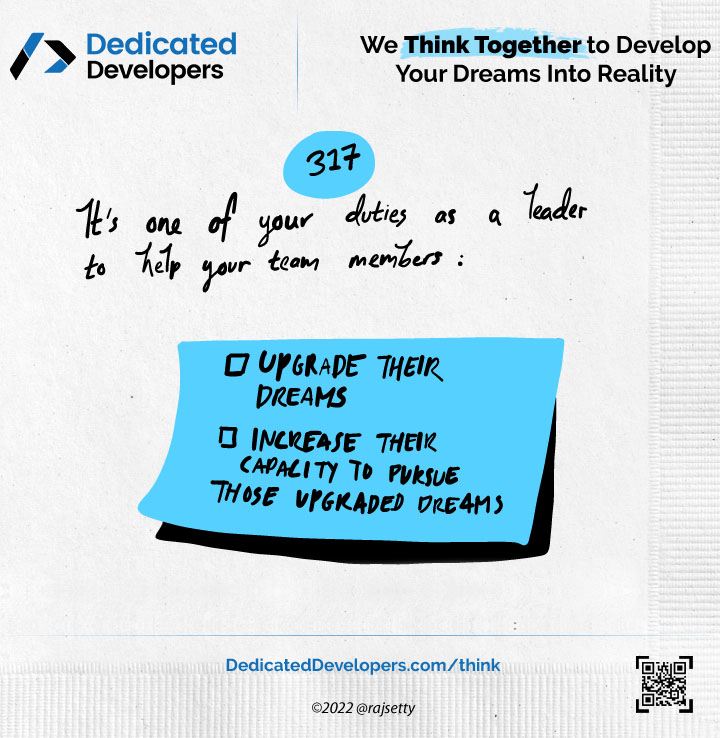 Dedicated
Developers
We Think Together to Develop
Your Dreams Into Reality
317
It's one of your duties as a leader
to help your team members :
UPGRADE THEIR
DREAMS
INCREASE THEIR
CAPACITY TO PURSUE
THOSE UPGRADED DREAMS
DedicatedDevelopers.com/think
©2022 @rajsetty